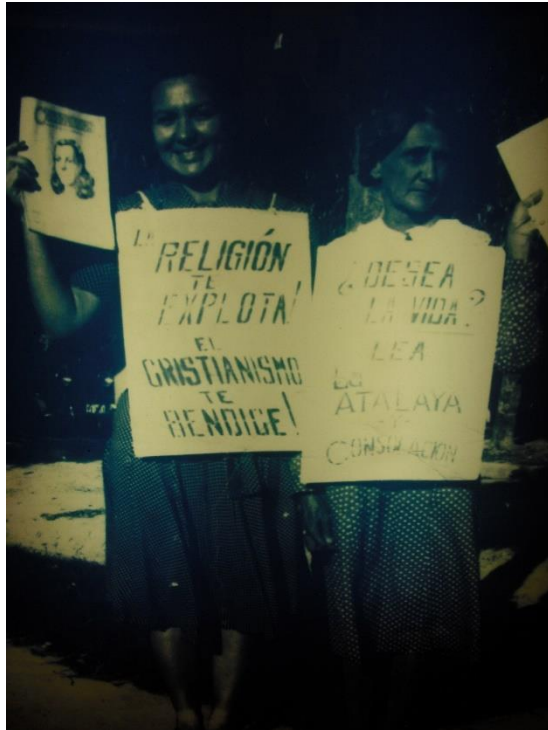 LA
RELIGIÓN
TE
EXPLOTA!
EL
CRISTIANISMO
TE
BENDICE!
¿DESEA
LA VIDA?
LEA
LA
ATALAYA
CONSOLACIÓN